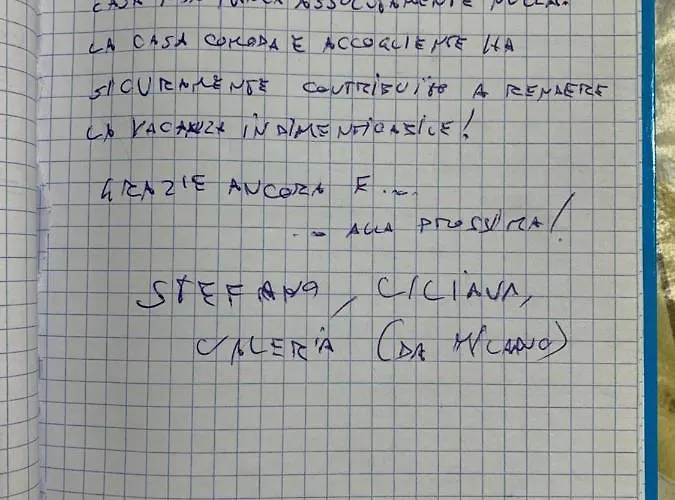 CASA NON MANCA ASSOLUTAMENTE NULLA.
LA CASA COMODA E ACCOGLIENTE HA
SICURAMENTE CONTRIBUITO A RENDERE
LA VACANZA INDIMENTICABILE!
GRAZIE ANCORA E ....
... ALLA PROSSIMA!
STEFANO, LILIANA,
VALERIA (DA MILANO)